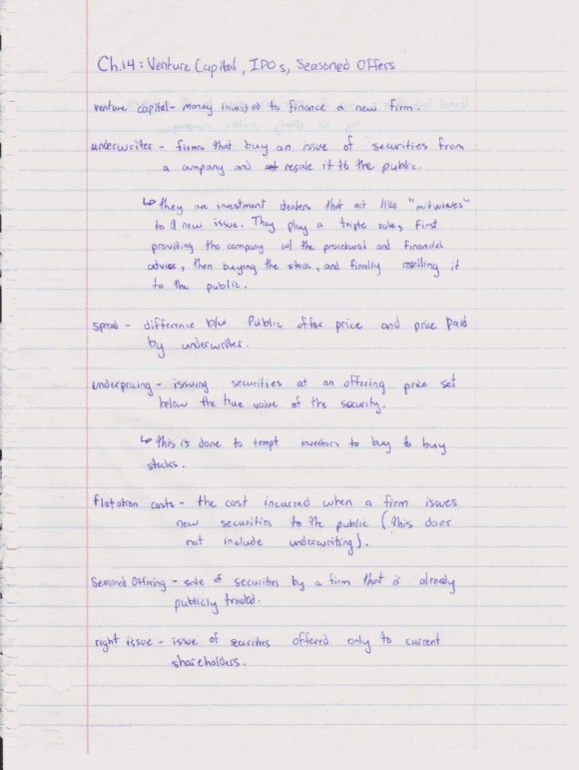 Ch.14: Venture Capital, IPOs, Seasoned Offers
venture capital - money invested to finance a new firm.
underwriter - firms that buy an issue of securities from
a company and resale it to the public.
↳ they are investment dealers that act like "midwives"
to a new issue. They play a triple role, first
providing the company w/ the procedural and financial
advise, then buying the stock, and finally reselling it
to the public.
spread - difference b/w Public offer price and price paid
by underwriter.
underpricing - issuing securities at an offering price set
below the true value of the security.
↳ this is done to tempt investors to buy to buy
stocks.
flotation costs - the cost incurred when a firm issues
new securities to the public (this does
not include underwriting).
Seasoned Offering - sale of securities by a firm that is already
publicly traded.
right issue - issue of securities offered only to current
shareholders.